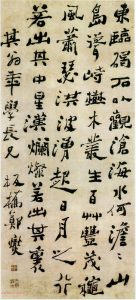 東臨碣石以觀滄海水何澹〻山
島竦峙樹木叢生百草豐茂秋
風蕭瑟洪波湧起日月之行
若出其中星漢燦爛若出其裏
年學長兄
板橋鄭燮